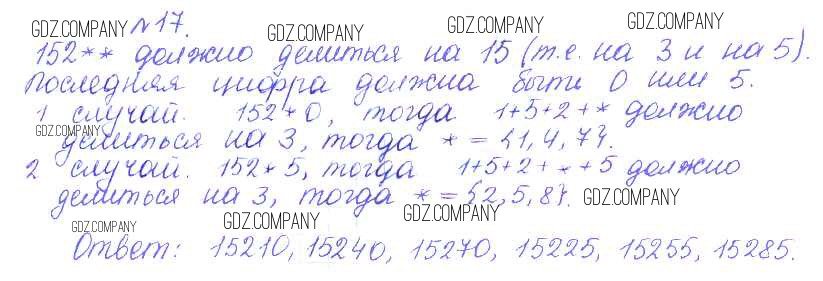 №17.
152** должно делиться на 15 (т.е. на 3 и на 5).
Последняя цифра должна быть 0 или 5.
1 случай. 152*0, тогда 1+5+2+* должно
делиться на 3, тогда * = {1,4,7}.
2 случай. 152*5, тогда 1+5+2+*+5 должно
делиться на 3, тогда * = {2,5,8}.
Ответ: 15210, 15240, 15270, 15225, 15255, 15285.
GDZ.COMPANY
GDZ.COMPANY
GDZ.COMPANY
GDZ.COMPANY
GDZ.COMPANY
GDZ.COMPANY
GDZ.COMPANY
GDZ.COMPANY
GDZ.COMPANY